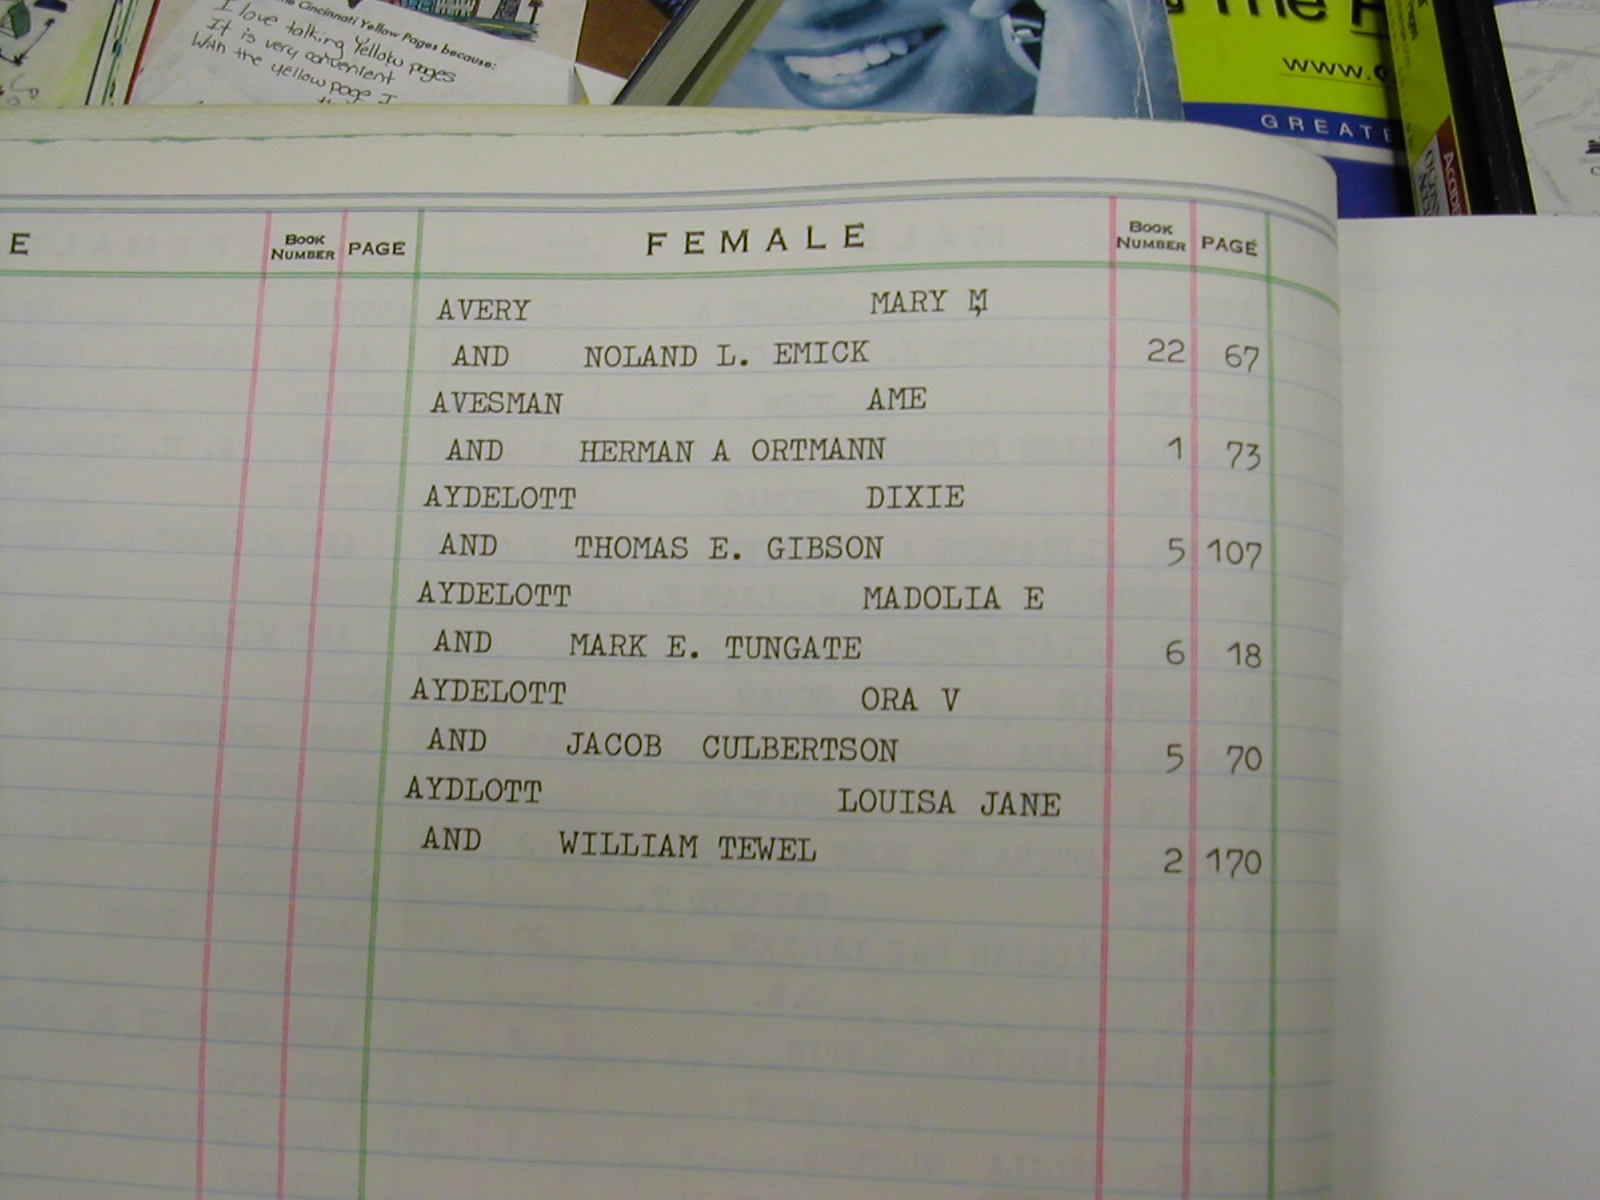 he Cincinnati Yellow Pages because:
I love talking Yellow pages
It is very convenient
With the yellow page I
The
www.
GREATE
E BOOK NUMBER PAGE FEMALE BOOK NUMBER PAGE
AVERY MARY M,
AND NOLAND L. EMICK 22 67
AVESMAN AME
AND HERMAN A ORTMANN 1 73
AYDELOTT DIXIE
AND THOMAS E. GIBSON 5 107
AYDELOTT MADOLIA E
AND MARK E. TUNGATE 6 18
AYDELOTT ORA V
AND JACOB CULBERTSON 5 70
AYDLOTT LOUISA JANE
AND WILLIAM TEWEL 2 170